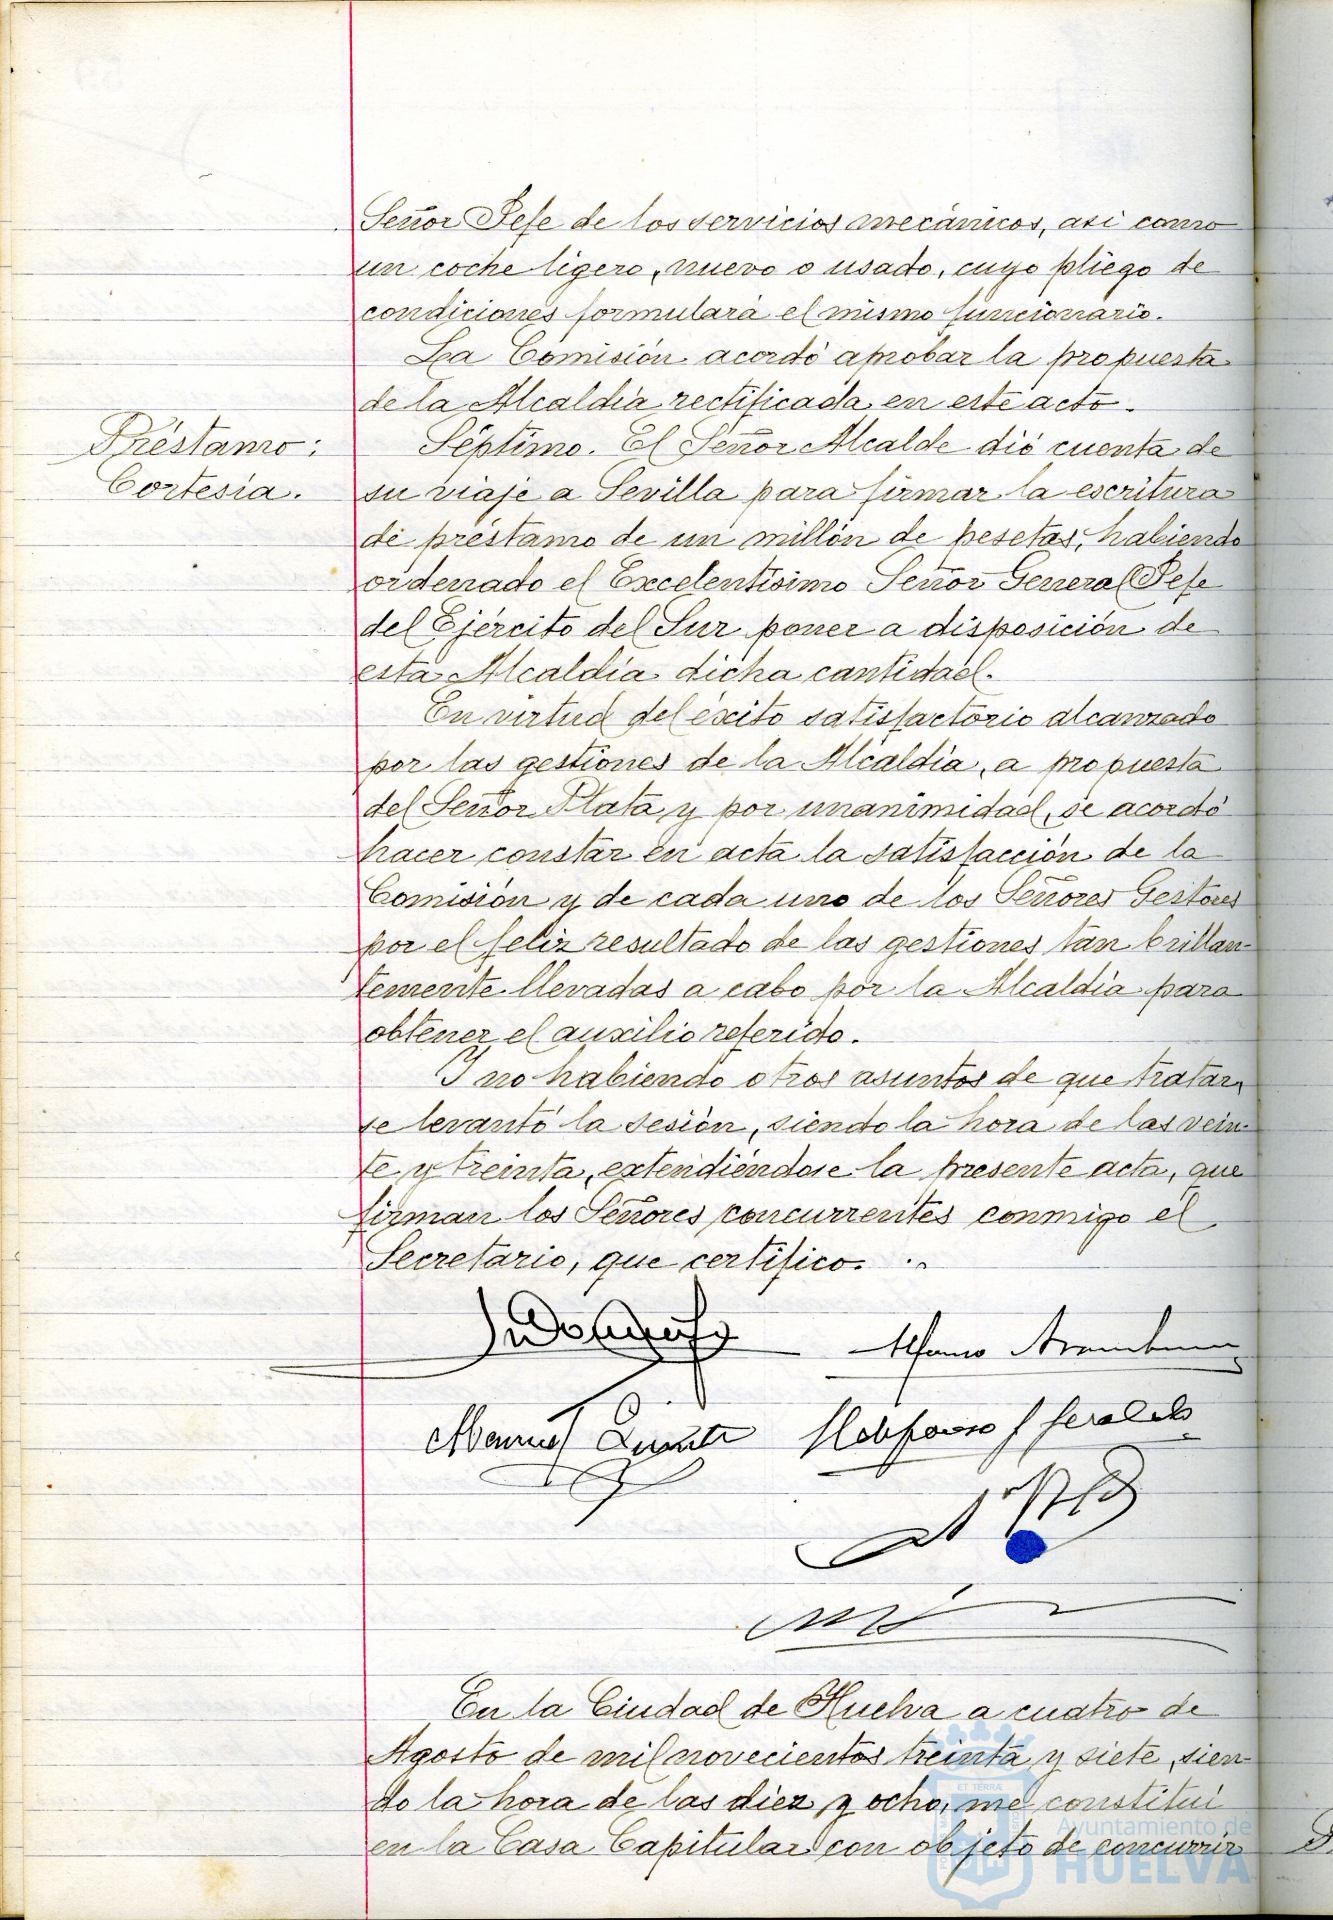 Señor Jefe de los servicios mecánicos, asi como
un coche ligero, nuevo o usado, cuyo pliego de
condiciones formulará el mismo funcionario.
La Comisión acordó aprobar la propuesta
de la Alcaldía rectificada en este acto.
Préstamo:
Cortesia.
Séptimo. El Señor Alcalde dió cuenta de
su viaje a Sevilla para firmar la escritura
de préstamo de un millón de pesetas, habiendo
ordenado el Excelentísimo Señor General Jefe
del Ejército del Sur poner a disposición de
esta Alcaldía dicha cantidad.
En virtud del éxito satisfactorio alcanzado
por las gestiones de la Alcaldía, a propuesta
del Señor Plata y por unanimidad, se acordó
hacer constar en acta la satisfacción de la
Comisión y de cada uno de los Señores Gestores
por el feliz resultado de las gestiones tan brillan-
temente llevadas a cabo por la Alcaldía para
obtener el auxilio referido.
Y no habiendo otros asuntos de que tratar,
se levantó la sesión, siendo la hora de las vein-
te y treinta, extendiéndose la presente acta, que
firman los Señores concurrentes conmigo el
Secretario, que certifico.
Alfonso
Manuel
Ildefonso
En la Ciudad de Huelva a cuatro de
Agosto de mil novecientos treinta y siete, sien-
do la hora de las diez y ocho, me constituí
en la Casa Capitular con objeto de concurrir
ET TERRÆ
Ayuntamiento de
HUELVA